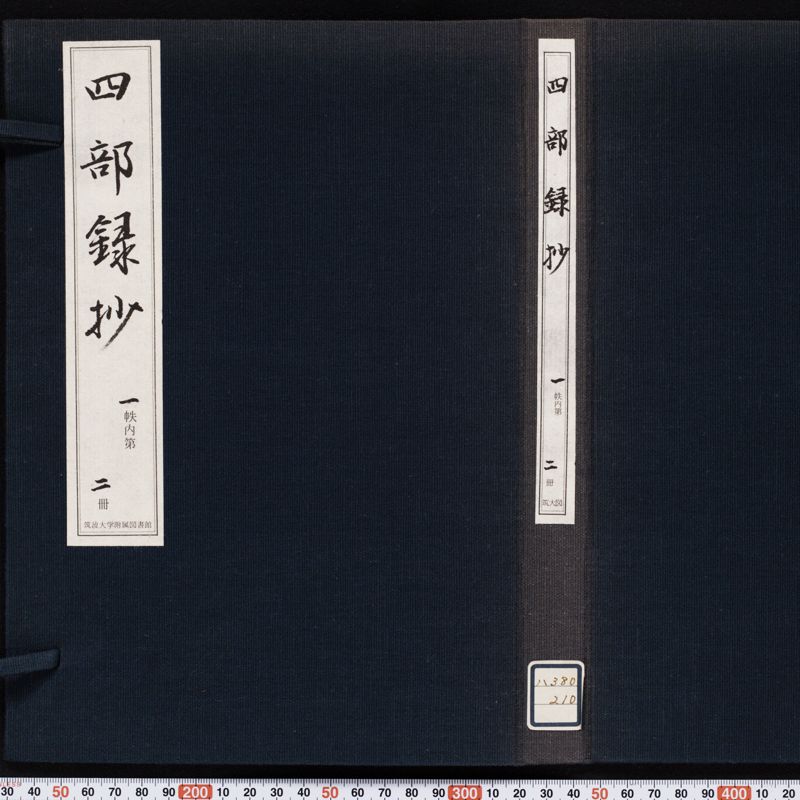 四部録抄
一帙内第
二冊
筑波大学附属図書館
四部録抄
一帙内第
二冊
筑大図
ハ380
210
30 40 50 60 70 80 90 200 10 20 30 40 50 60 70 80 90 300 10 20 30 40 50 60 70 80 90 400 10 20